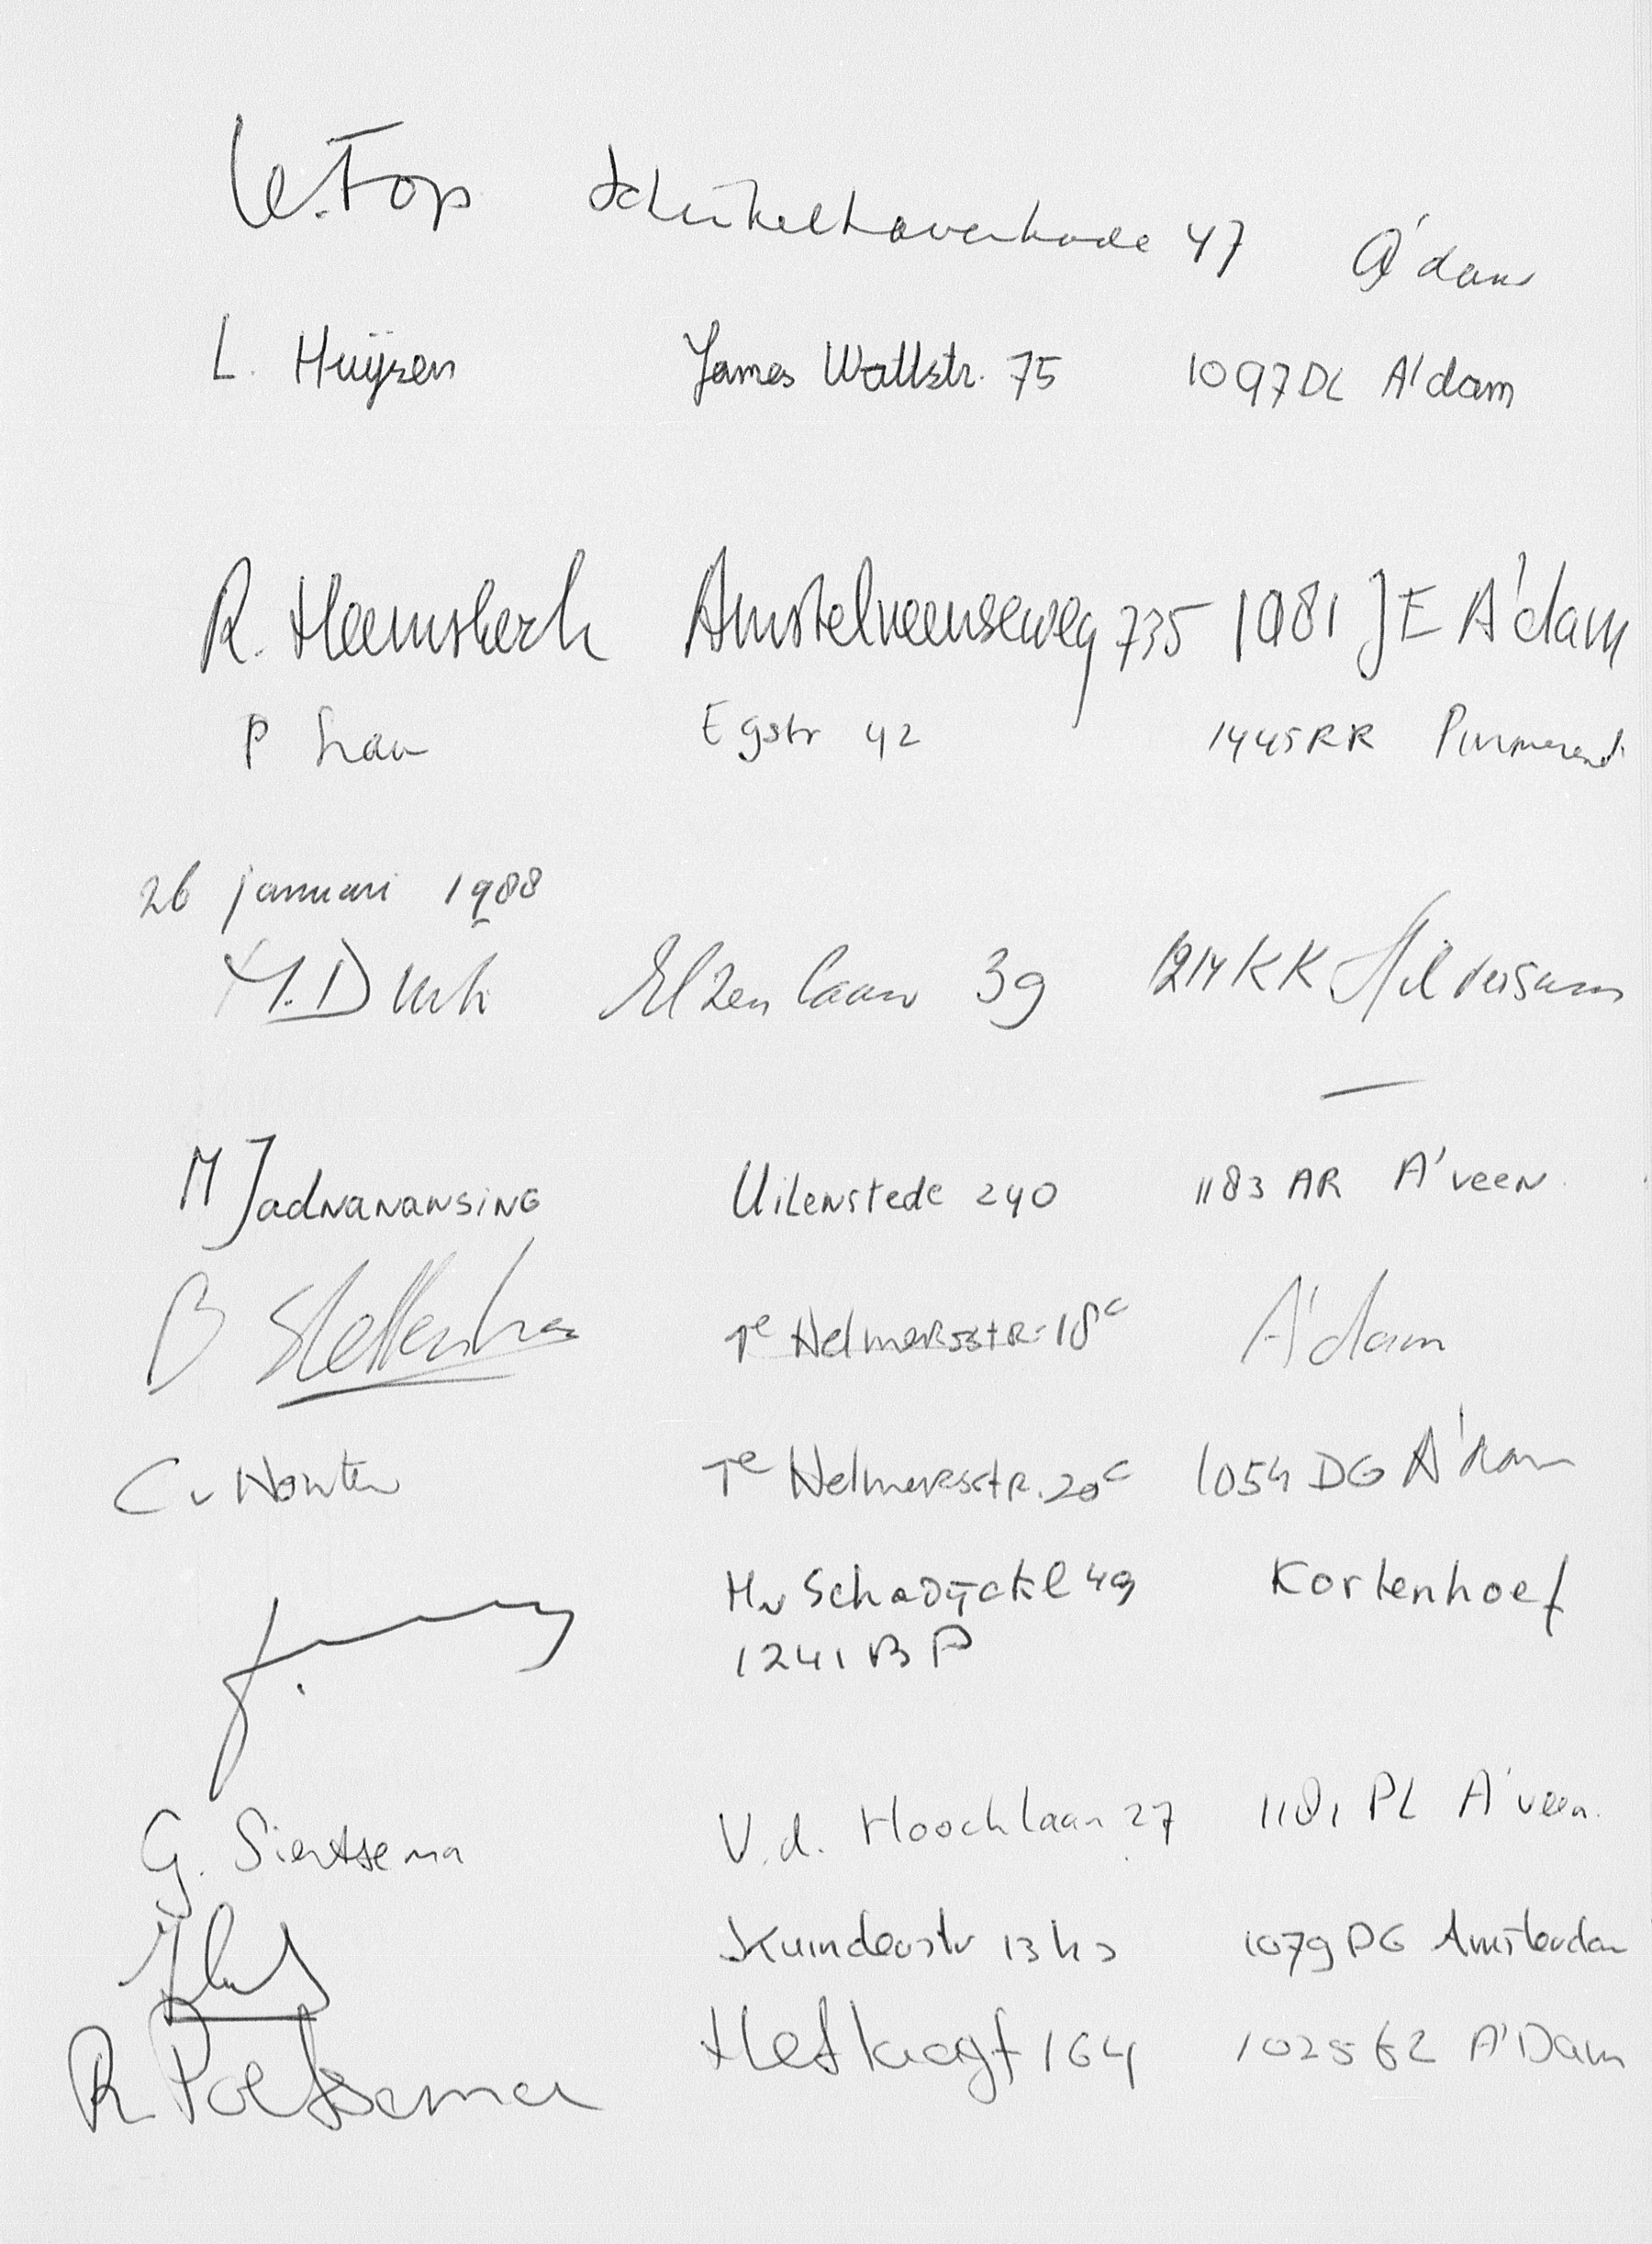 W. Fop Schinkelhavenkade 47 A'dam
L. Huijzen James Wattstr. 75 1097 DL A'dam
R. Heemskerk Amstelveenseweg 735 1081 JE A'dam
P Egstr 42 1445 RR Purmerend
26 januari 1988
Elzenlaan 39 1214 KK Hilversum
M Jadnanansing Uilenstede 240 1183 AR A'veen
B 1e Helmersstr. 18c A'dam
C v Houten 1e Helmersstr. 20c 1054 DG A'dam
49 Kortenhoef
1241 BP
G. Siertsema V.d. Hoochlaan 27 1181 PL A'veen.
Kuinderstr 13 hs 1079 DG Amsterdam
R Poetsema Het Laagt 164 1025 GZ A'Dam